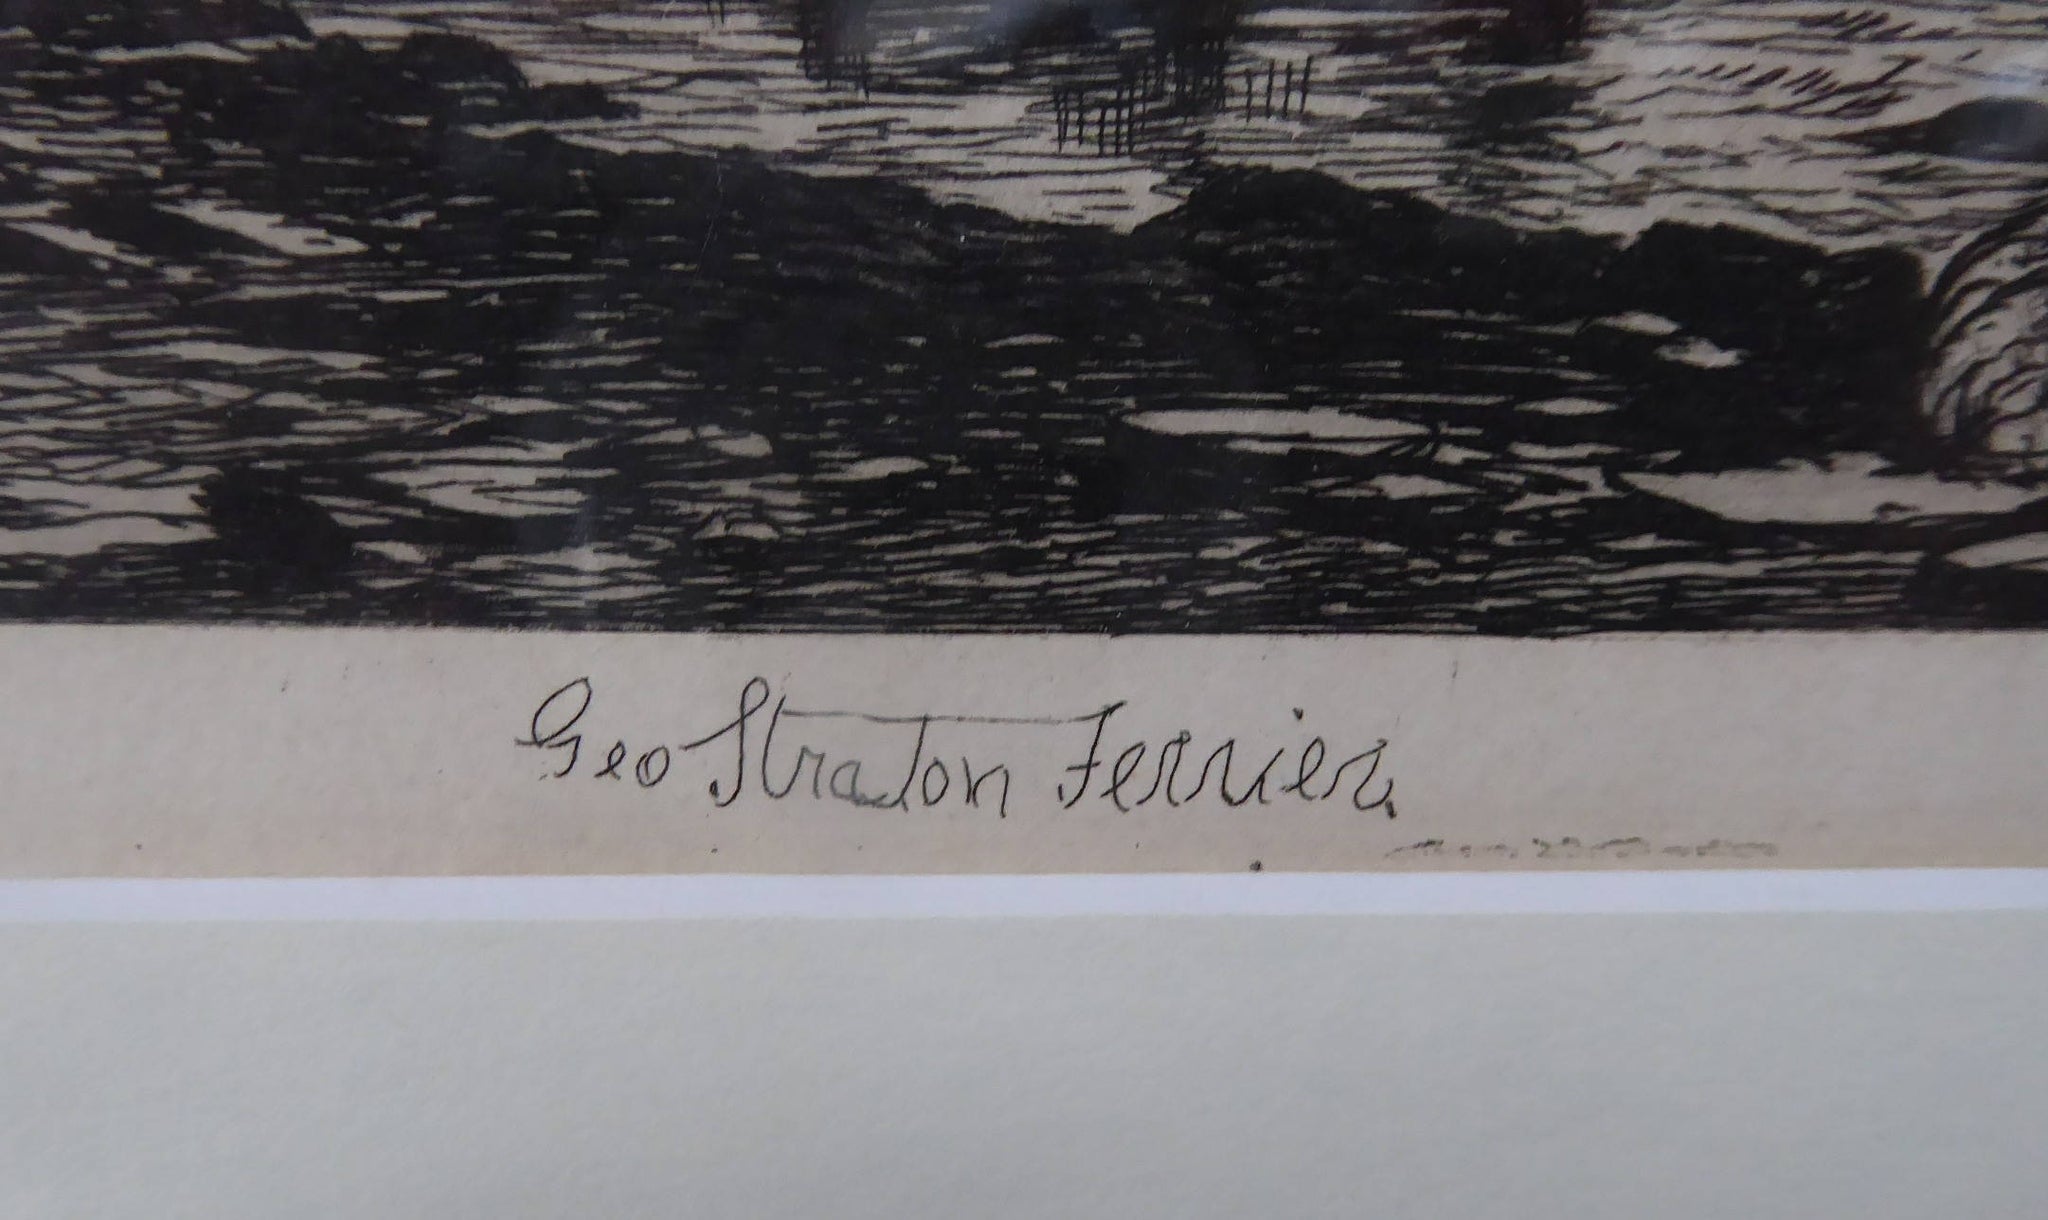 Geo Straton Ferrier.